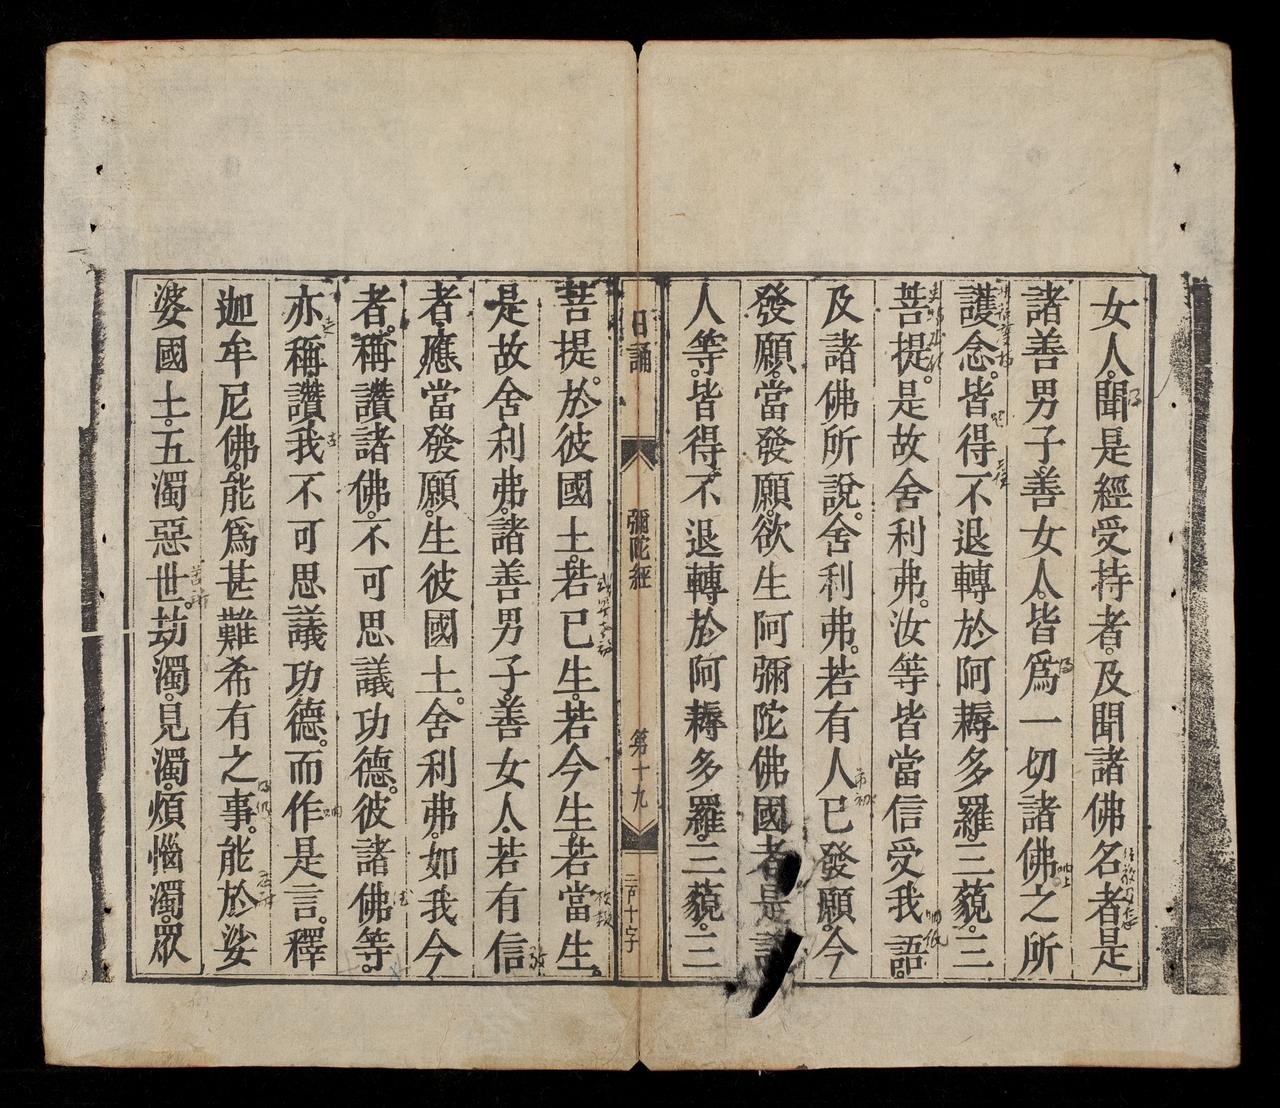 女人。聞是經受持者。及聞諸佛名者是
諸善男子。善女人。皆爲一切諸佛之所
護念。皆得不退轉於阿耨多羅。三藐。三
菩提。是故舍利弗。汝等皆當信受我語。
及諸佛所說。舍利弗。若有人已發願。今
發願。當發願。欲生阿彌陀佛國者是諸
人等。皆得不退轉於阿耨多羅。三藐。三
日誦 彌陀經 第十九 二百十字
菩提。於彼國土。若已生。若今生。若當生。
是故舍利弗。諸善男子。善女人。若有信
者。應當發願。生彼國土。舍利弗。如我今
者。稱讚諸佛。不可思議功德。彼諸佛等。
亦稱讚我不可思議功德。而作是言。釋
迦牟尼佛。能爲甚難希有之事。能於娑
婆國土。五濁惡世。劫濁。見濁。煩惱濁。眾